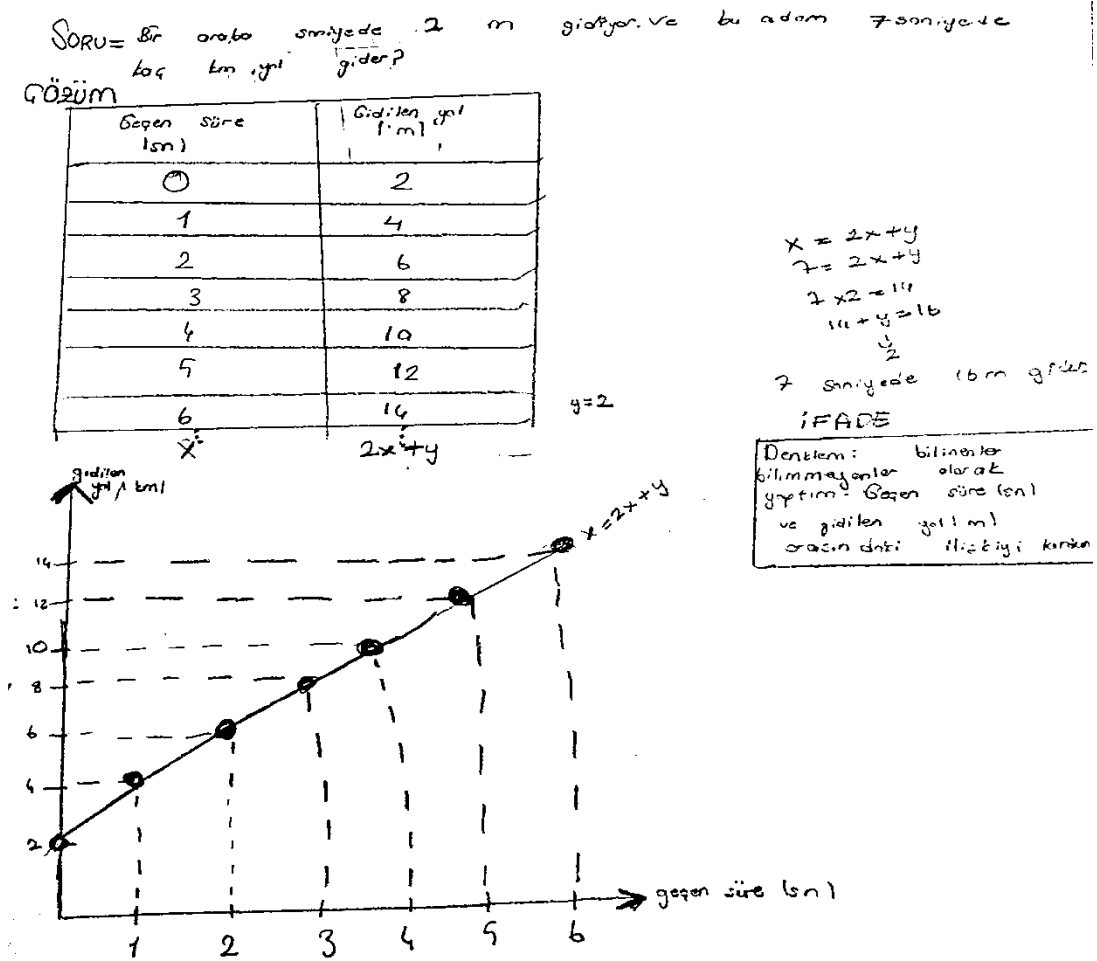 SORU= Bir araba saniyede 2 m gidiyor. ve bu adam 7 saniyede
kaç km yol gider?
ÇÖZÜM
Geçen süre (sn) Gidilen yol (m)
0 2
1 4
2 6
3 8
4 10
5 12
6 14
x 2x+y
y=2
x = 2x+y
7 = 2x+y
7 x2 = 14
14 + y = 16
2
7 saniyede 16 m gider
İFADE
Denklem: bilinenler
bilinmeyenler olarak
yaptım. Geçen süre (sn)
ve gidilen yol (m)
arasındaki ilişkiyi
gidilen
yol (km)
x = 2x+y
14
12
10
8
6
4
2
1 2 3 4 5 6
geçen süre (sn)